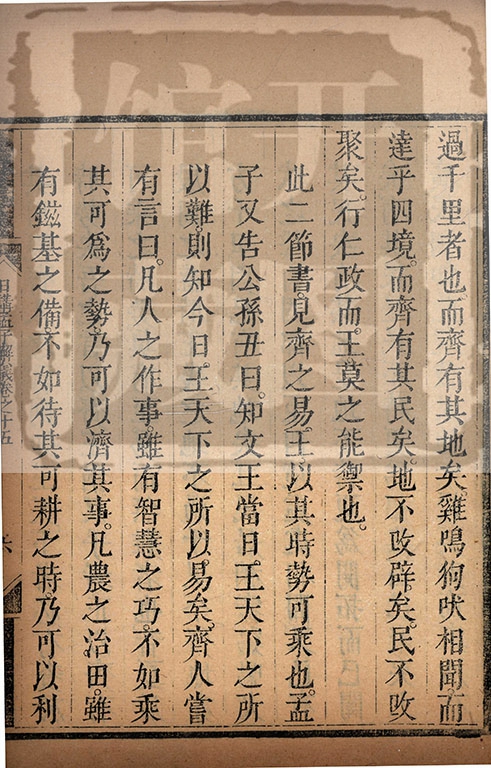 過千里者也而齊有其地矣。雞鳴狗吠相聞而
達乎四境。而齊有其民矣。地不改辟矣。民不改
聚矣。行仁政而王莫之能禦也。
此二節書。見齊之易王以其時勢可乘也。孟
子又告公孫丑曰。知文王當日。王天下之所
以難。則知今日王天下之所以易矣。齊人嘗
有言曰。凡人之作事。雖有智慧之巧。不如乘
其可為之勢。乃可以濟其事。凡農之治田。雖
有鎡基之備。不如待其可耕之時。乃可以利
日講孟子解義卷之十五
六